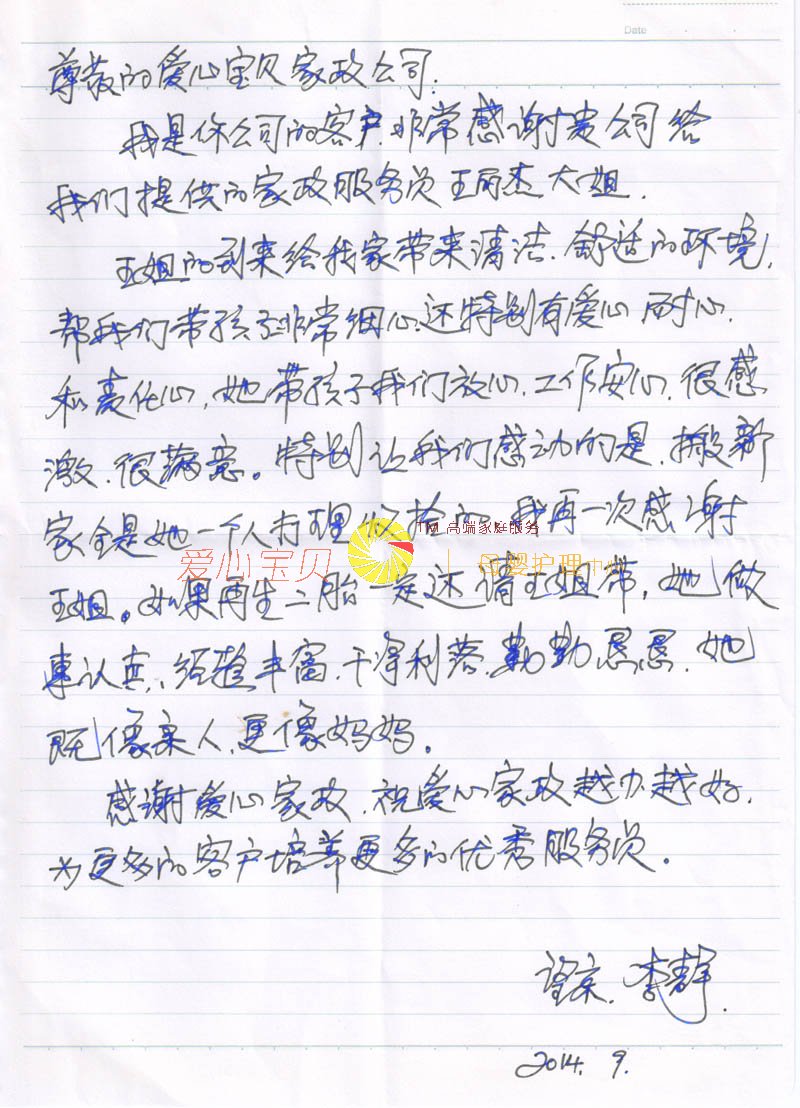 Date
尊敬的爱心宝贝家政公司:
我是你公司的客户.非常感谢贵公司给
我们提供的家政服务员王丽杰大姐.
王姐的到来给我家带来清洁.舒适的环境,
帮我们带孩子非常细心.还特别有爱心 耐心.
和责任心,她带孩子我们放心.工作安心.很感
激.很满意。特别让我们感动的是.搬新
家全是她一个人打理 的,我再一次感谢
TM 高端家庭服务
爱心宝贝 母婴护理中心
王姐。如果再生二胎一定还请王姐带,她做
事认真、经验丰富.干净利落.勤勤恳恳.她
既像亲人.更像妈妈。
感谢爱心家政.祝爱心家政越办越好.
为更多的客户培养更多的优秀服务员。
望京.李静.
2014. 9.